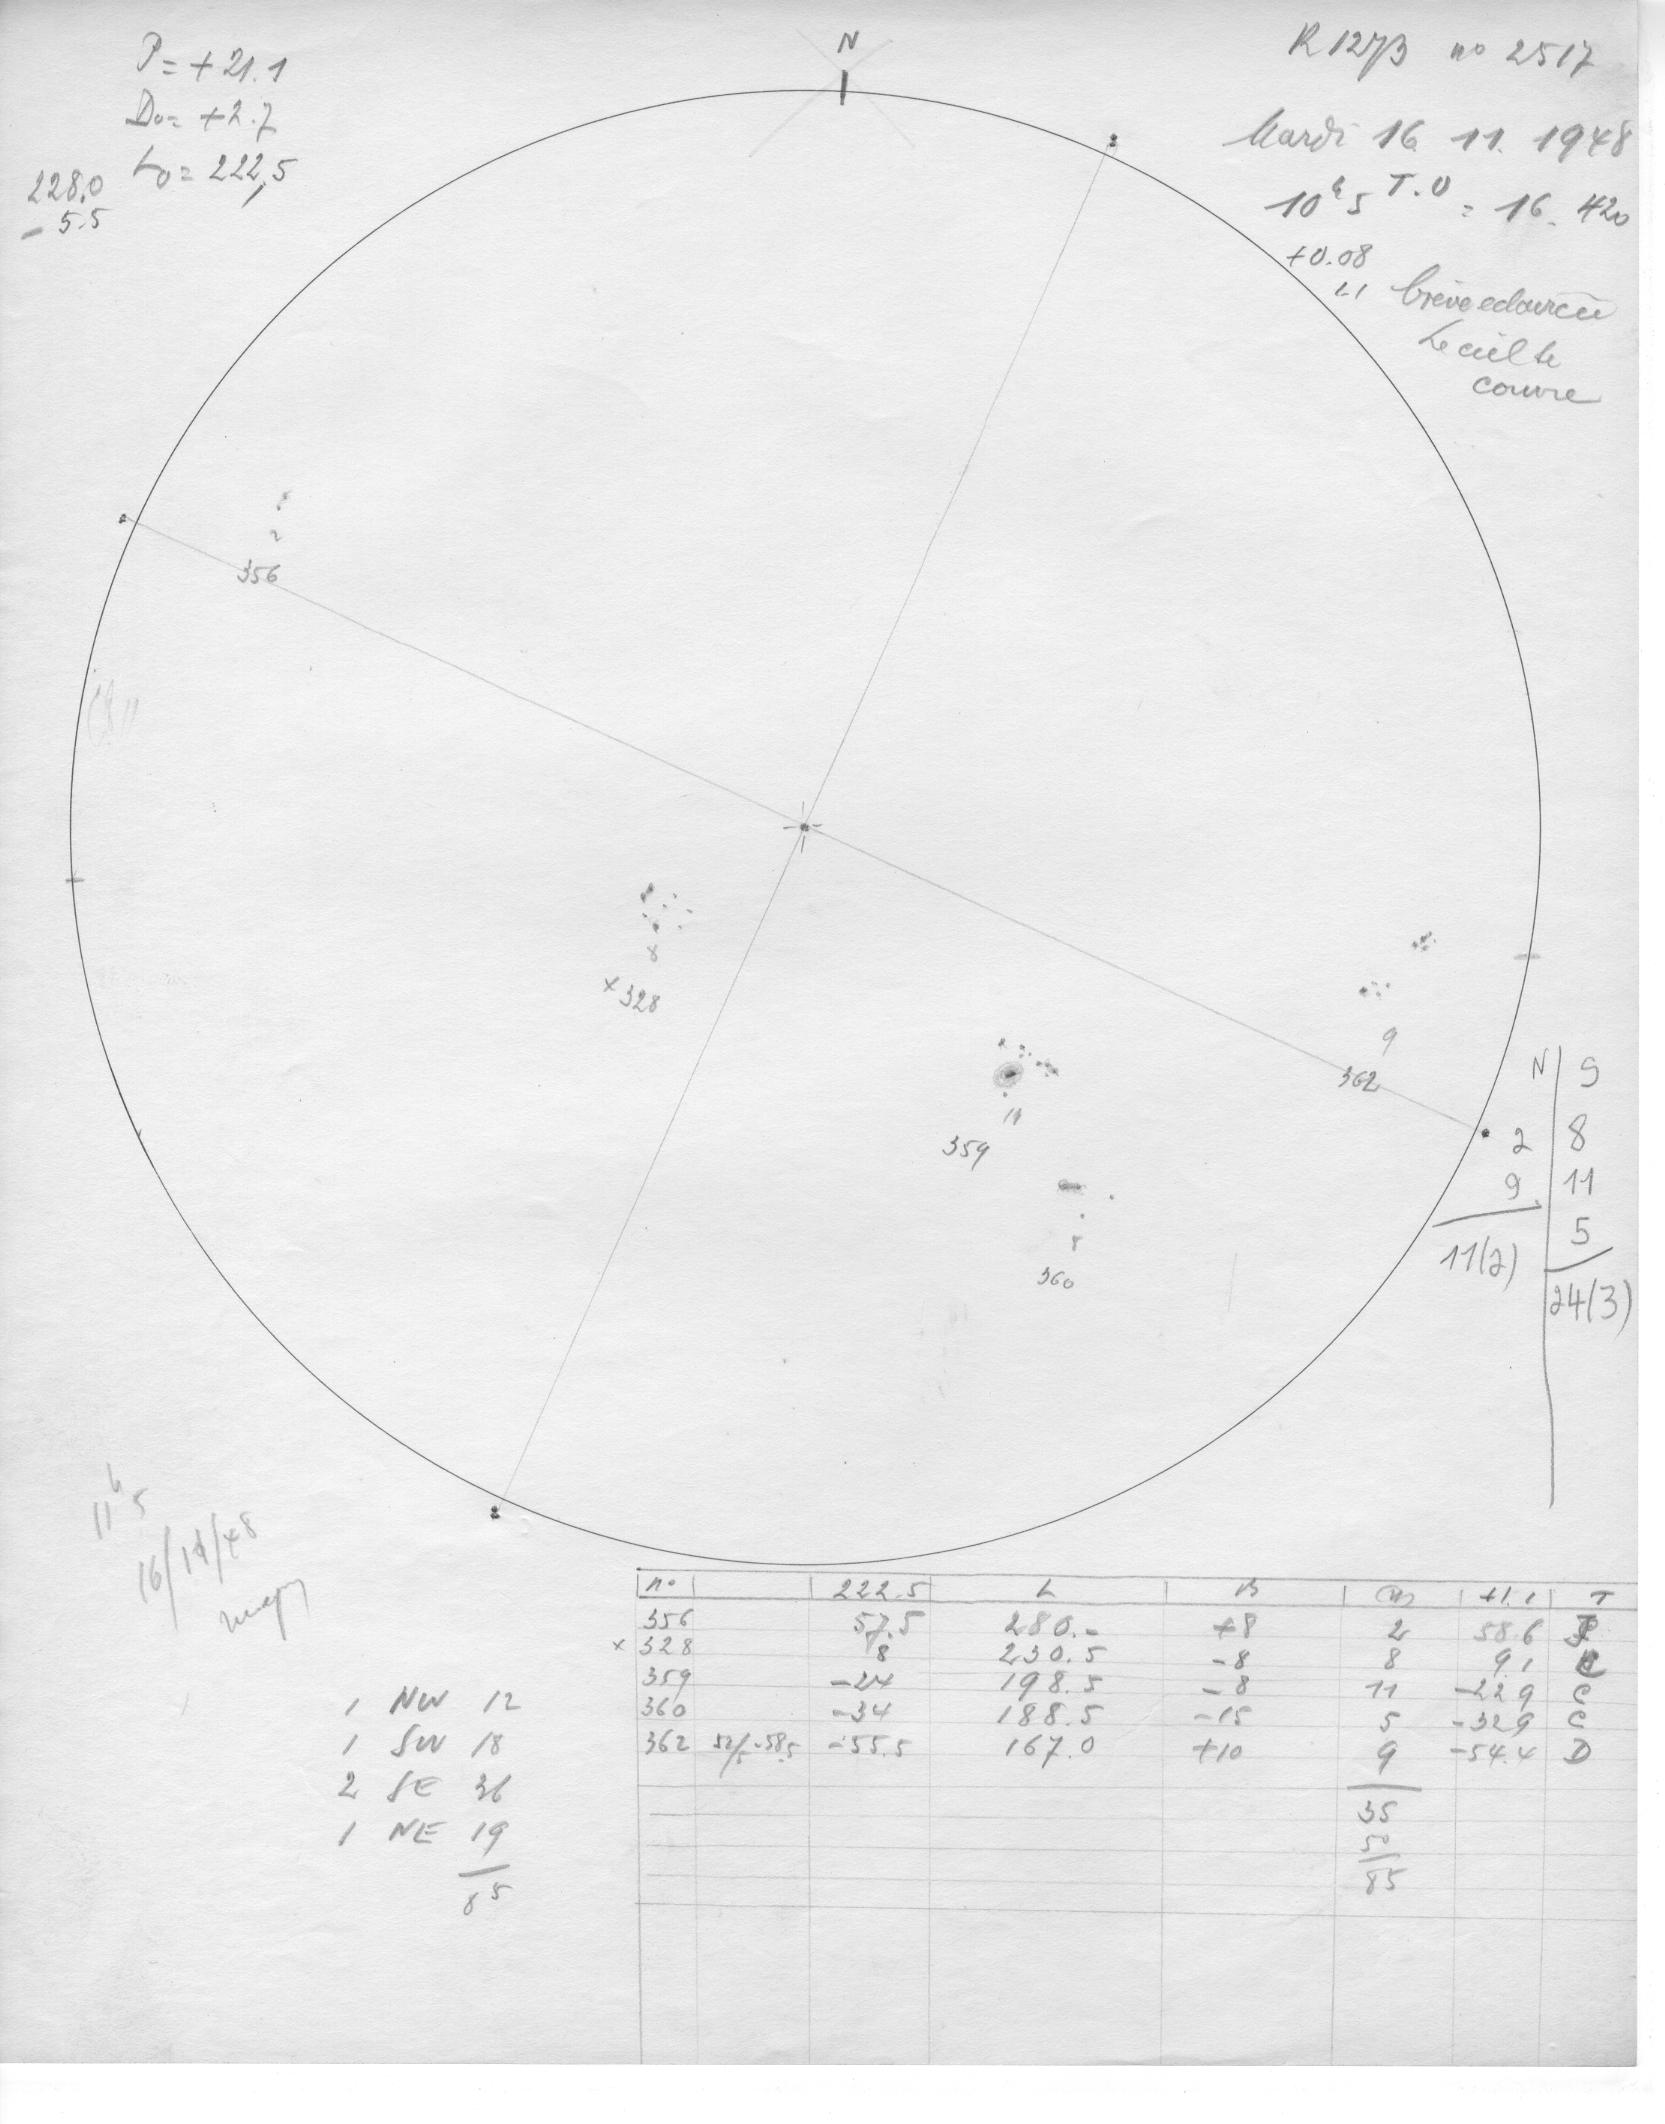 P = + 21.1
D₀ = + 2.7
L₀ = 222,5
228,0
- 5.5
N
R 1273 no 2517
Mardi 16. 11. 1948
10ʰ5 T.U = 16. 420
+0.08
1.1 brève eclaircie
Le ciel se
couvre
2
356
8
× 328
9
362
11
359
360
N | S
2 | 8
9 | 11
5
11(2)
24(3)
11ʰ5
16/11/48
n° 222.5 L B +1.1 T
356 57.5 280.- +8 2 58.6
× 328 8 230.5 -8 8 9,1
359 -24 198.5 -8 11 -229 C
360 -34 188.5 -15 5 -329 C
362 -55.5 167.0 +10 9 -54.4 D
35
50
85
1 NW 12
1 SW 18
2 SE 36
1 NE 19
85